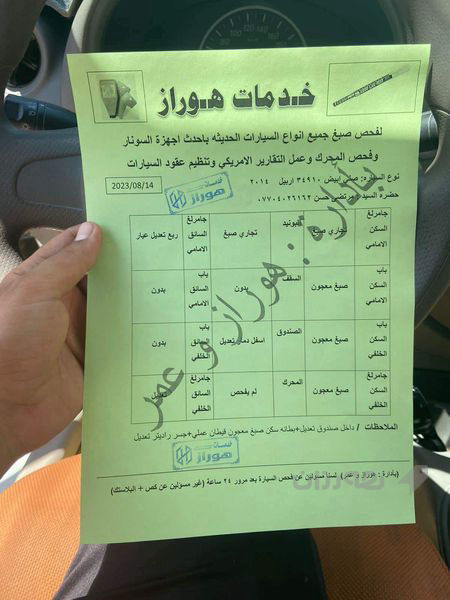 خدمات هوراز
لفحص صبغ جميع انواع السيارات الحديثه باحدث اجهزة السونار
وفحص المحرك وعمل التقارير الامريكي وتنظيم عقود السيارات
نوع السياره: صني ابيض ٣٤٩١٠ اربيل ٢٠١٤
2023/08/14
حضره السيد: مرتضى حسن ٠٧٧٠٤٠٢٦١٦٢
خدمات
هوراز
جامرلغ السكن الامامي تجاري صبغ البونيد تجاري صبغ جامرلغ السائق الامامي ربع تعديل عيار
باب السكن الامامي صبغ معجون السقف بدون باب السائق الامامي بدون
باب السكن الخلفي صبغ معجون الصندوق اسفل دمار تعديل باب السائق الخلفي بدون
جامرلغ السكن الخلفي صبغ معجون المحرك لم يفحص جامرلغ السائق الخلفي تعديل
بادارة: هوراز و عمر
الملاحظات / داخل صندوق تعديل+بطانه سكن صبغ معجون قبطان عملي+جسر راديتر تعديل
خدمات
هوراز
(بادارة : هوراز و عمر) لسنا مسولين عن فحص السيارة بعد مرور ٢٤ ساعة (غير مسولين عن كص + البلاستك)